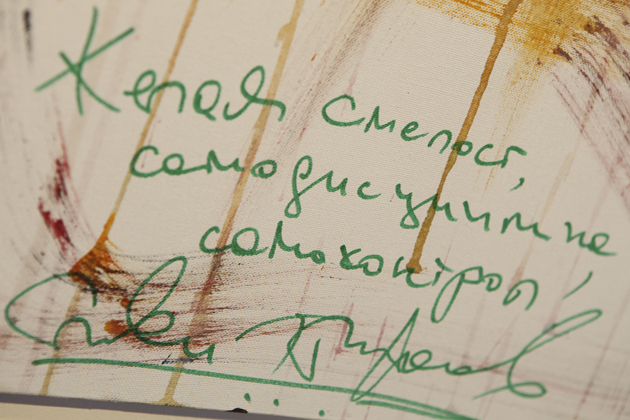 Желая смелост,
самодисциплина
самоконтрол,